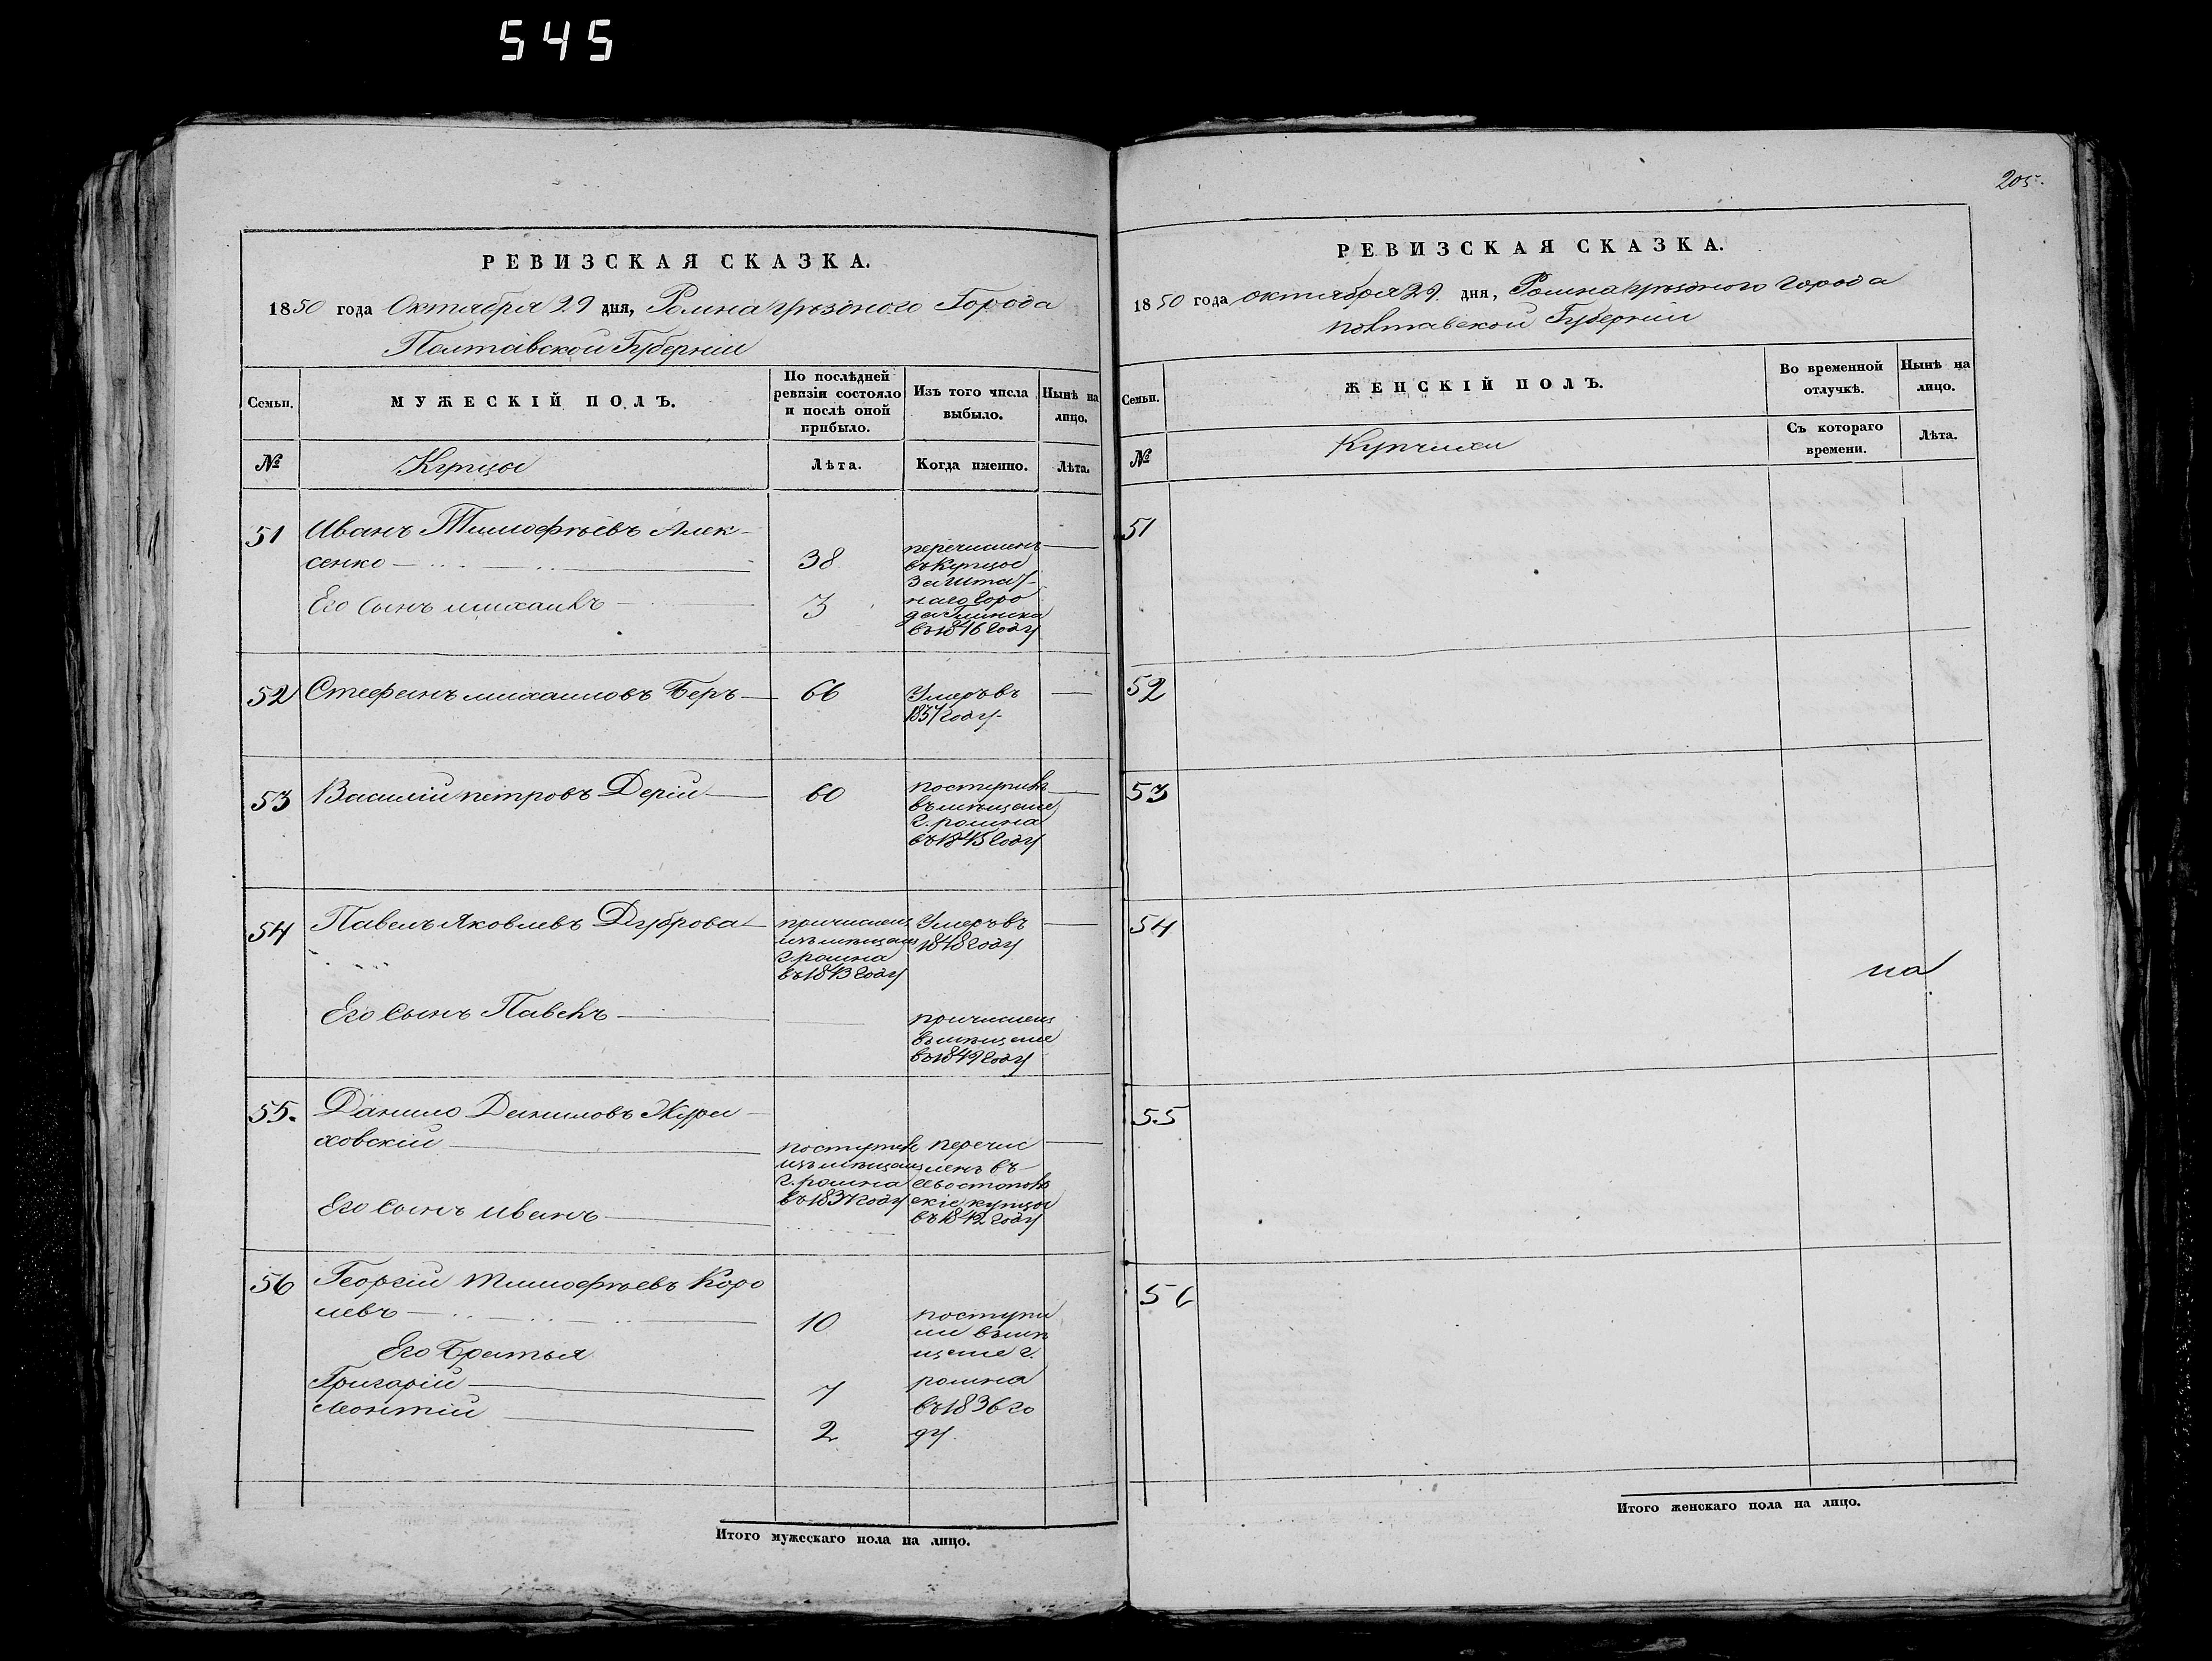 545
РЕВИЗСКАЯ СКАЗКА.
1850 года Октября 29 дня, Ромна уѣзднаго Города
Полтавской Губерніи
Семьи.
МУЖЕСКІЙ ПОЛЪ.
По послѣдней
ревизіи состояло
и послѣ оной
прибыло.
Изъ того числа
выбыло.
Нынѣ на
лицо.
№
Купцы
Лѣта.
Когда именно.
Лѣта.
51
Иванъ Тимофѣевъ Алек-
сенко
38
Его Сынъ михаилъ
3
перечисленъ
въ Купцы
Заштат-
наго Горо
да Глинска
въ 1846 Году
52
Стефанъ михаиловъ Беръ
66
Умеръ въ
1837 году
53
Василій петровъ Дерій
60
поступилъ
въ мѣщане
г. ромна
въ 1845 Году
54
Павелъ Яковлевъ Дуброва
причисленъ
изъ мѣщанъ
г. ромна
въ 1843 году
Умеръ въ
1848 Году
Его Сынъ Павелъ
причисленъ
въ мѣщане
въ 1849 Году
55.
Данило Даниловъ Жура
ховскій
Его Сынъ Иванъ
поступилъ
изъ мѣщанъ
г. ромна
въ 1837 году
перечис
ленъ въ
севостополь
скіе купцы
въ 1842 Году
56
Георгій Тимофѣевъ Коро
левъ
10
Его Братья
Григорій
7
Леонтій
2
поступи
ли въ мѣ
щане г.
ромна
въ 1836 го
ду.
Итого мужескаго пола на лицо.
205.
РЕВИЗСКАЯ СКАЗКА.
1850 года октября 29. дня, Ромна уѣзднаго города
полтавской Губерніи
Семьи.
ЖЕНСКІЙ ПОЛЪ.
Во временной
отлучкѣ.
Нынѣ на
лицо.
№
Купчихи
Съ котораго
времени.
Лѣта.
51
52
53
54
55
56
Итого женскаго пола на лицо.